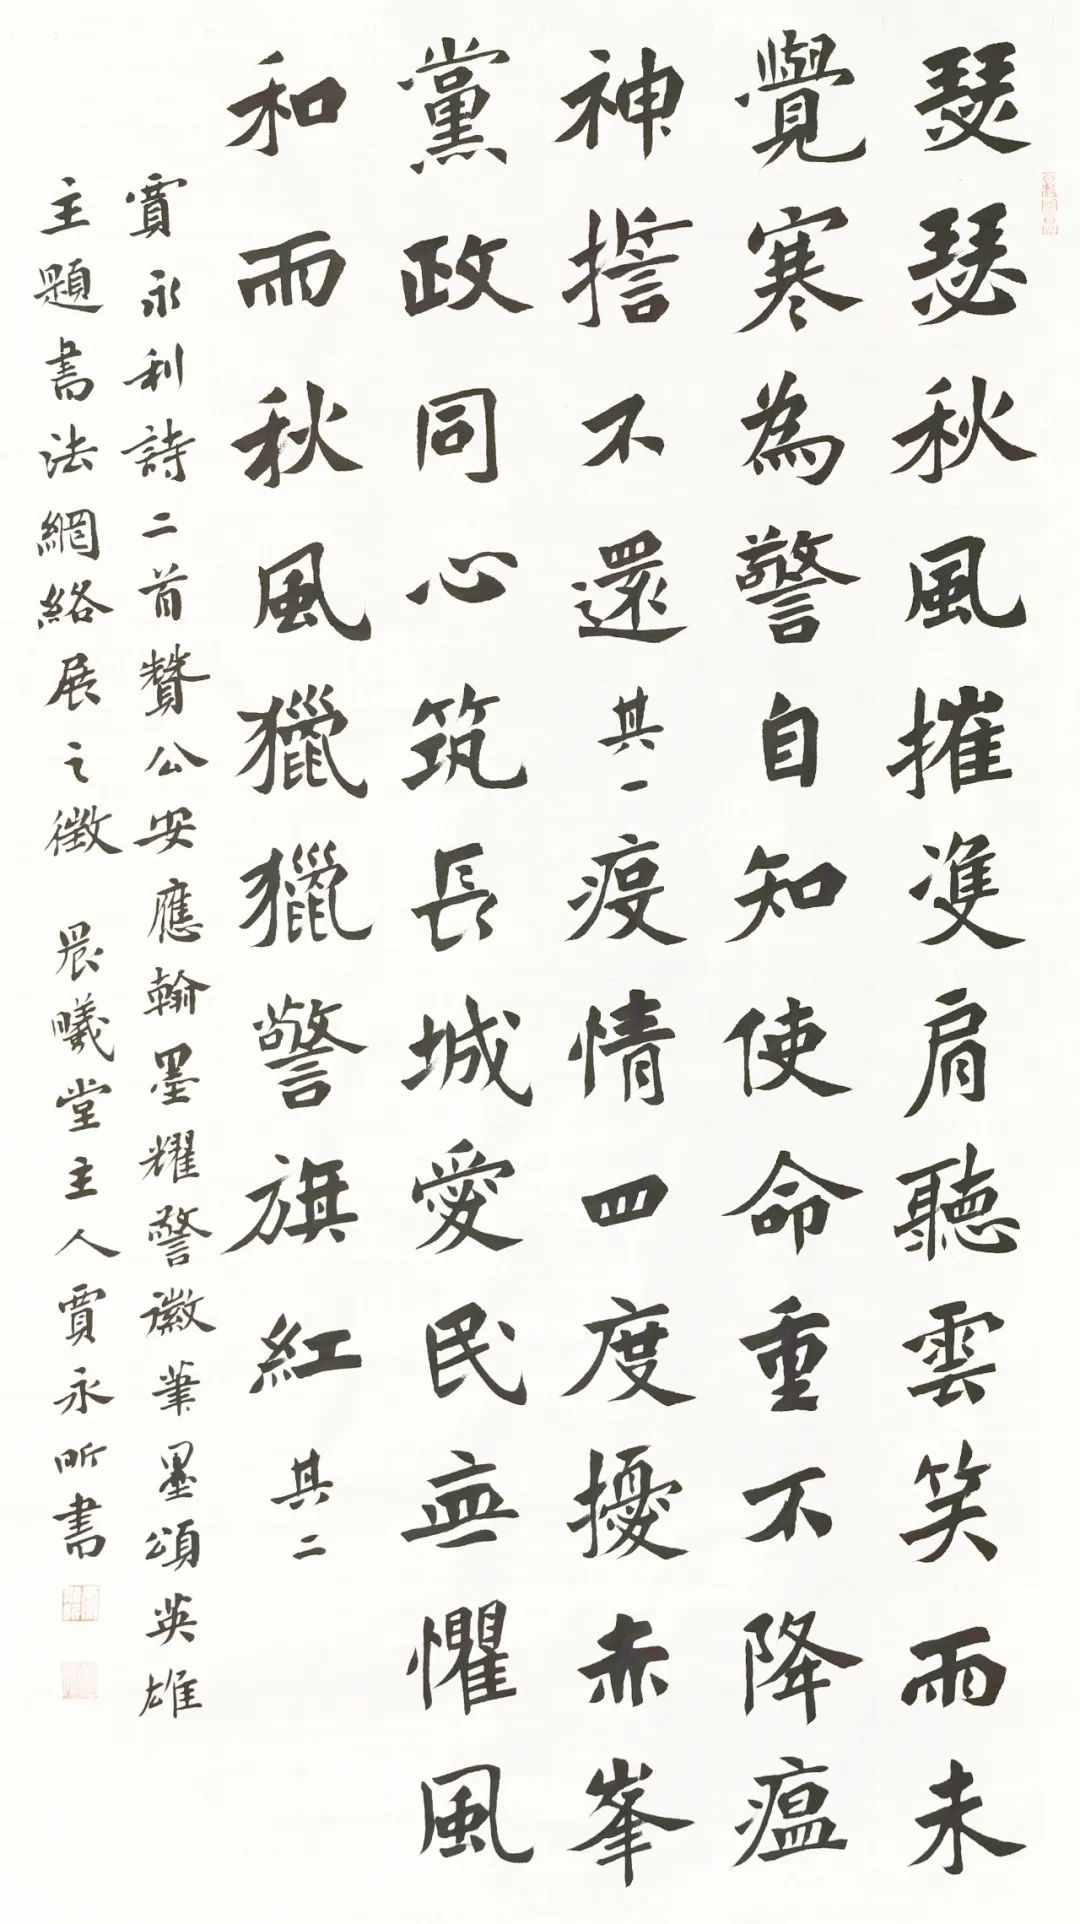 瑟瑟秋風摧雙肩聽雲笑雨未
覺寒為警自知使命重不降瘟
神誓不還其一疫情四度擾赤峯
黨政同心筑長城愛民無懼風
和雨秋風獵獵警旗紅其二
賈永利詩二首贊公安應翰墨耀警徽筆墨頌英雄
主題書法網絡展之徵 晨曦堂主人賈永昕書